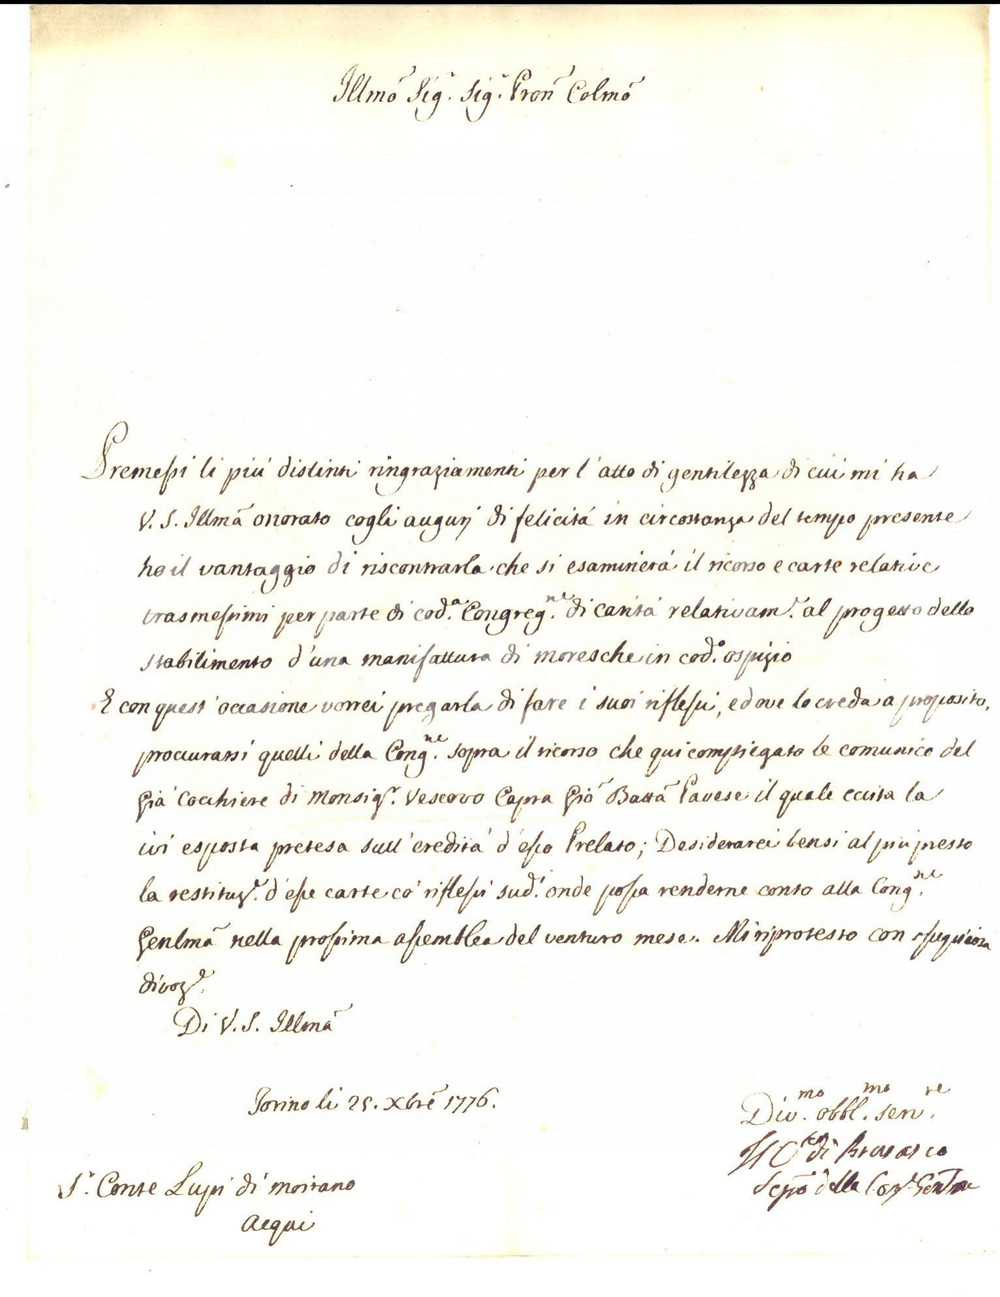 Illmo Sig.r Sig.r Pron Colmo
Premessi li più distinti ringraziamenti per l'atto di gentilezza di cui mi ha
V. S. Illma onorato cogli augurj di felicità in circostanza del tempo presente
ho il vantaggio di riscontrarla che si esaminerà il ricorso e carte relative
trasmessimi per parte di cod.a Congreg.ne di carità relativam.e al progetto dello
stabilimento d'una manifattura di moresche in cod.o ospizio
E con quest'occasione vorrei pregarla di fare i suoi riflessi, e dove lo creda a proposito,
procurarsi quelli della Cong.ne sopra il ricorso che qui compiegato le comunico del
già Cocchiere di Monsig.r Vescovo Capra Gio Batta Pavese il quale eccita la
ivi esposta pretesa sull'eredità d'esso Prelato; Desiderarei bensi al più presto
la restituz.e d'esse carte co' riflessi sud.i onde possa renderne conto alla Cong.ne
Genlma nella prossima assemblea del venturo mese. Mi riprotesto con ossequiosa
divoz.e
Di V. S. Illma
Torino li 25. Xbre 1776.
Div.mo obbl.mo serv.re
di Brusasco
Segro della Con.e Genle
S.r Conte Lupi di Moirano
Acqui